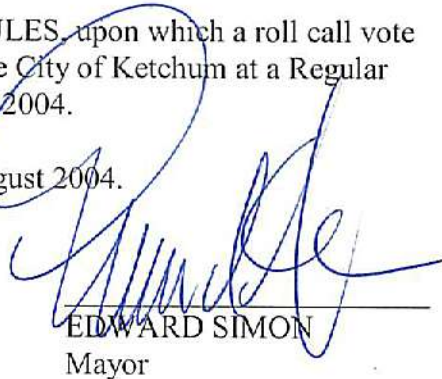 ULES, upon which a roll call vote
e City of Ketchum at a Regular
2004.
gust 2004.
EDWARD SIMON
Mayor